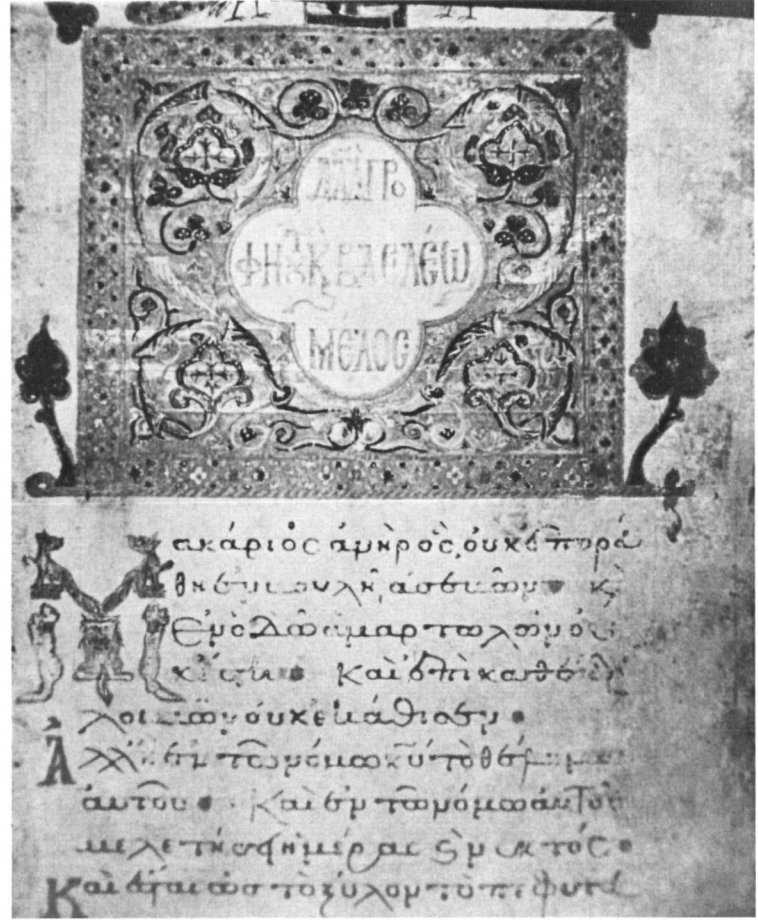 ΒΑCΙΛΕΩ
ΜΕΛΟC
Μακάριος ἀνὴρ ὃς οὐκ ἐπορεύ
θη ἐν βουλῆ ἀσεβῶν · κ̀
Ἐν ὁδῶ ἁμαρτωλῶν οὐκ
ἔστη · Καὶ ἐπὶ καθέδρα
λοιμῶν οὐκ ἐκάθισεν ·
Ἀλλ' ἢ ἐν τῶ νόμω κ̅υ̅ τὸ θέλημα
αὐτοῦ · Καὶ ἐν τῶ νόμω αὐτοῦ
μελετήσει ἡμέρας ϗ νυκτός ·
Καὶ ἔσται ὡς τὸ ξύλον τὸ πεφυτευ